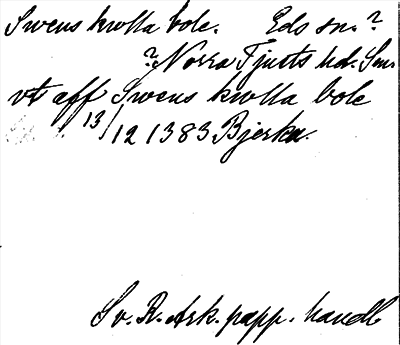 Swens kwlla bole. Eds sn. ?
? Norra Tjusts hd. Sm.
vt aff Swens kwlla bole
13/12 1383 Bjerka.
Sv. R. Ark. papp. handl.